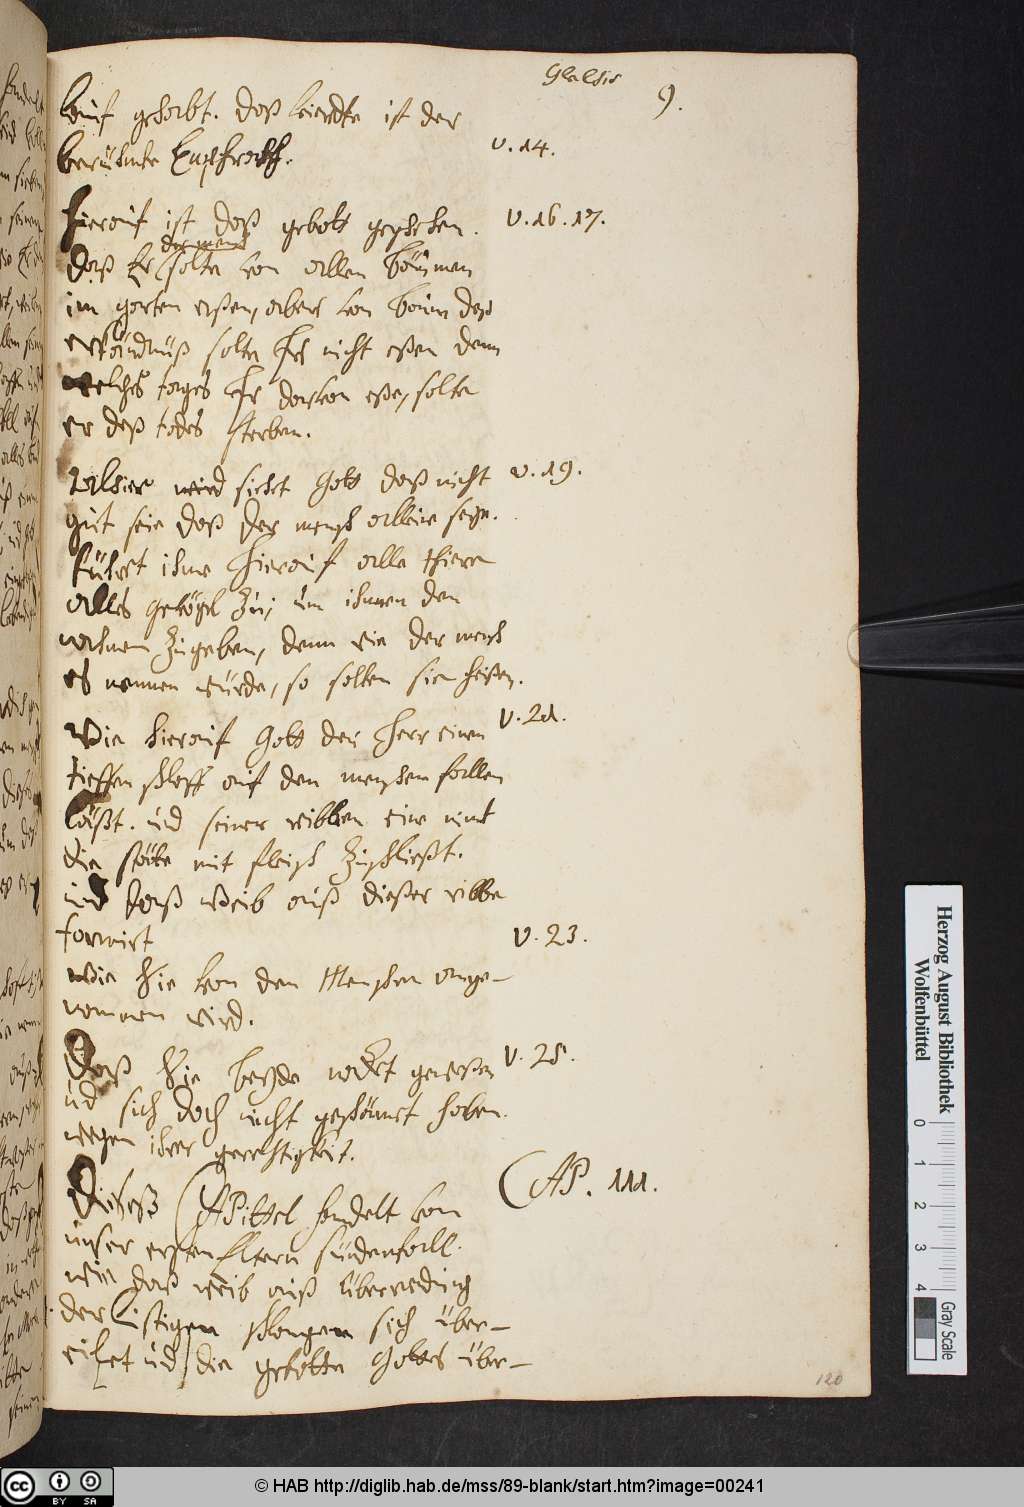 9.
lauf gehabt. daß vierdte ist der
berühmte Euphrath.
v. 14.
Hierauf ist daß gebott geschehen.
v. 16. 17.
der mensch
daß Er solte von allen Bäumen
im garten eßen, aber von Baum deß
erkäntnüß solte Er nicht eßen denn
welches tages Er darvon eße, solte
er deß todes sterben.
wird siehet Gott daß nicht
v. 19.
gut seie daß der mensch alleine seye.
führet ihme hierauf alle thiere
alles gevögel zu, um ihnen den
nahmen zu geben, denn wie der mensch
es nennen würde, so solten sie heißen.
Wie hierauf Gott der Herr einen
v. 21.
tieffen schlaff auf den menschen fallen
läßt. und seiner ribben eine nimt
die stätte mit fleisch zuschließt.
und daß Weib auß dießer ribbe
formirt
v. 23.
wie Sie von den Menschen ange-
nommen wird.
Daß Sie beyde nacket geweßen
v. 25.
und sich doch nicht geschämet haben.
wegen ihrer gerechtigkeit.
Dießeß CAPittel handelt von
CAP. III.
unser ersten Eltern sündenfall.
wie daß weib auß überredung
der listigen schlangen sich über-
und die gebotte Gottes über-
120
Herzog August Bibliothek
Wolfenbüttel
0 1 2 3 4
Gray Scale
cc BY SA
© HAB http://diglib.hab.de/mss/89-blank/start.htm?image=00241